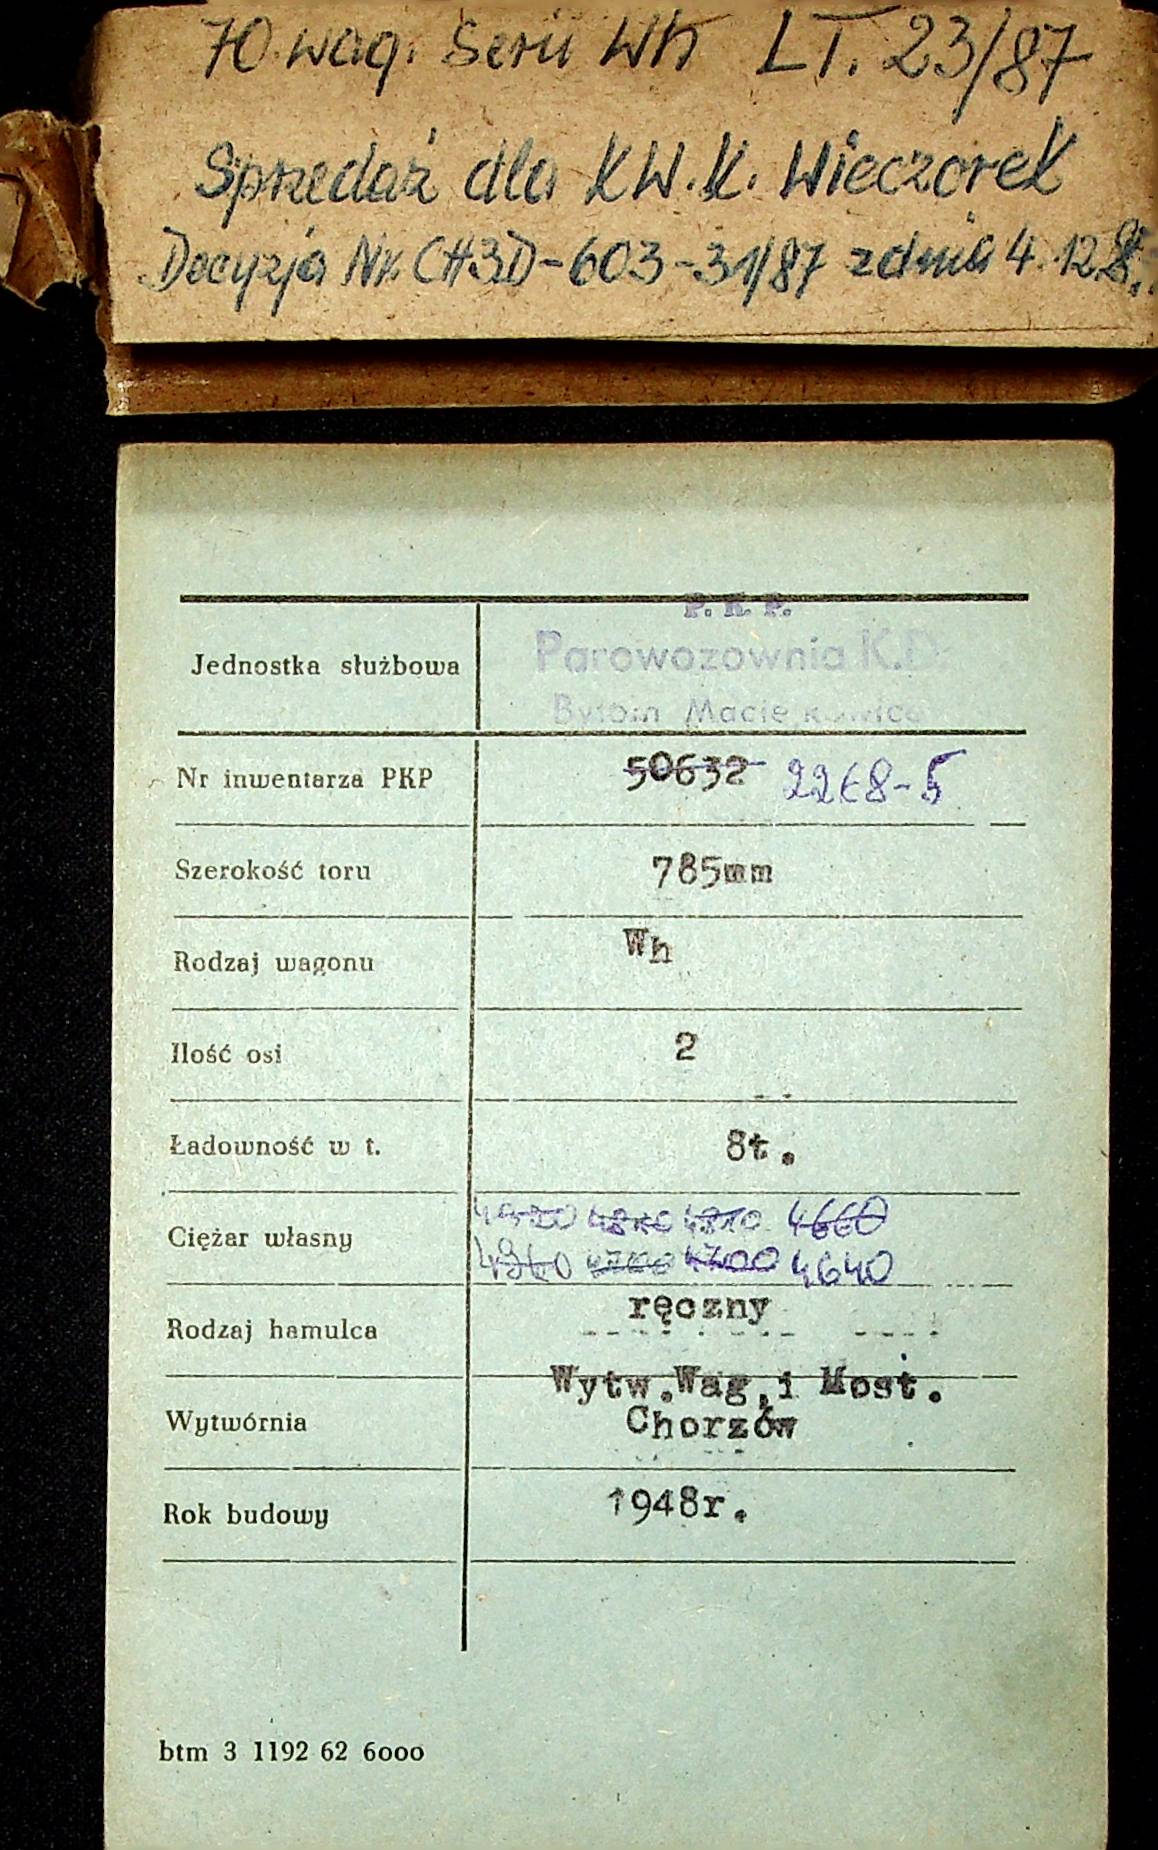 70 wag. Serii Wh LT. 23/87
Sprzedaż dla KW.K. Wieczorek
Decyzja Nr. CH3D-603-31/87 z dnia 4.12.
Jednostka służbowa
P. K. P.
Parowozownia K.D.
Bytom
Nr inwentarza PKP 50632 2268-5
Szerokość toru 785mm
Rodzaj wagonu Wh
Ilość osi 2
Ładowność w t. 8t.
Ciężar własny
4810 4660
4700 4640
Rodzaj hamulca ręczny
Wytwórnia Wytw.Wag,i Most.
Chorzów
Rok budowy 1948r.
btm 3 1192 62 6000